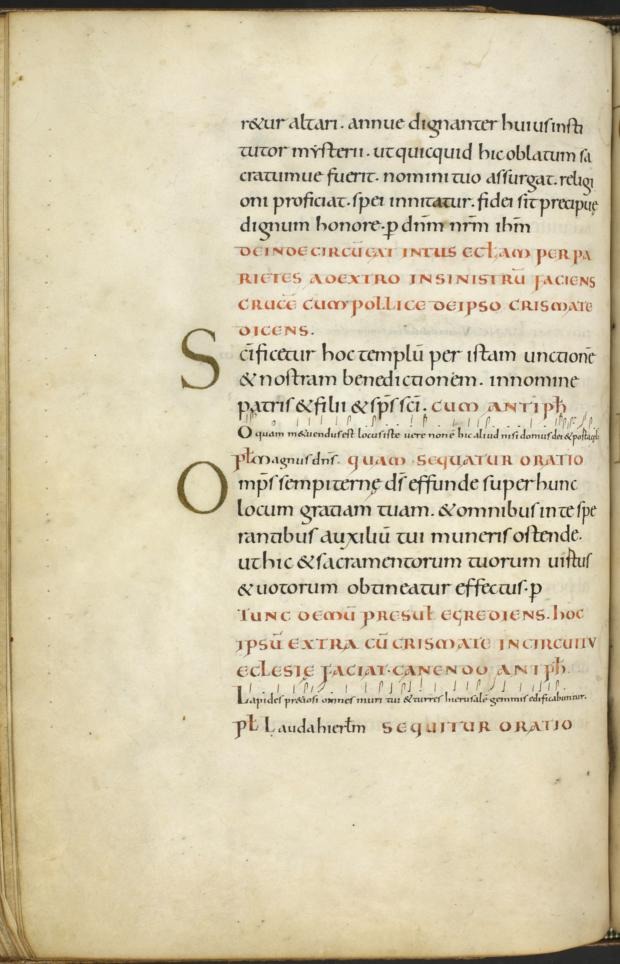 r&ur altari. annue dignanter huiusinsti
tutor mẏsterii. utquicquid hicoblatum sa
cratumue fuerit. nominituo assurgat. religi
oni proficiat. spei innitatur. fidei sit precipuę
dignum honore. ꝑ dn̄m nr̄m ihm̄
DEINDECIRCŪEAT INTUS ECŁAM PERPA
RIETES ADEXTRO INSINISTRŪ FACIENS
CRUCĒ CUMPOLLICE DEIPSO CRISMATE
DICENS.
Sc̄ificetur hoc templū per istam unctionē
& nostram benedictionem. innomine
patris & filii & sp̄s sc̄i. CUM ANTIPH̄
O quam m&uendusest locusiste uere nonē hic aliud nisi domusdei & porta cęli
pł Magnusdn̄s. QUAM SEQUATUR ORATIO
Omp̄s sempiternę ds̄ effunde super hunc
locum gratiam tuam. & omnibus inte spe
rantibus auxiliū tui muneris ostende.
uthic & sacramentorum tuorum uirtus
& uotorum obtineatur effectus. ꝑ
TUNC DEMŪ PRESUŁ EGREDIENS. HOC
IPSŪ EXTRA CŪ CRISMATE INCIRCUITU
ECLESIE FACIAT. CANENDO ANTIPH̄.
Lapides pr&iosi omnes muri tui & turres hierusalē gemmis edificabuntur.
pł Lauda hierłm SEQUITUR ORATIO